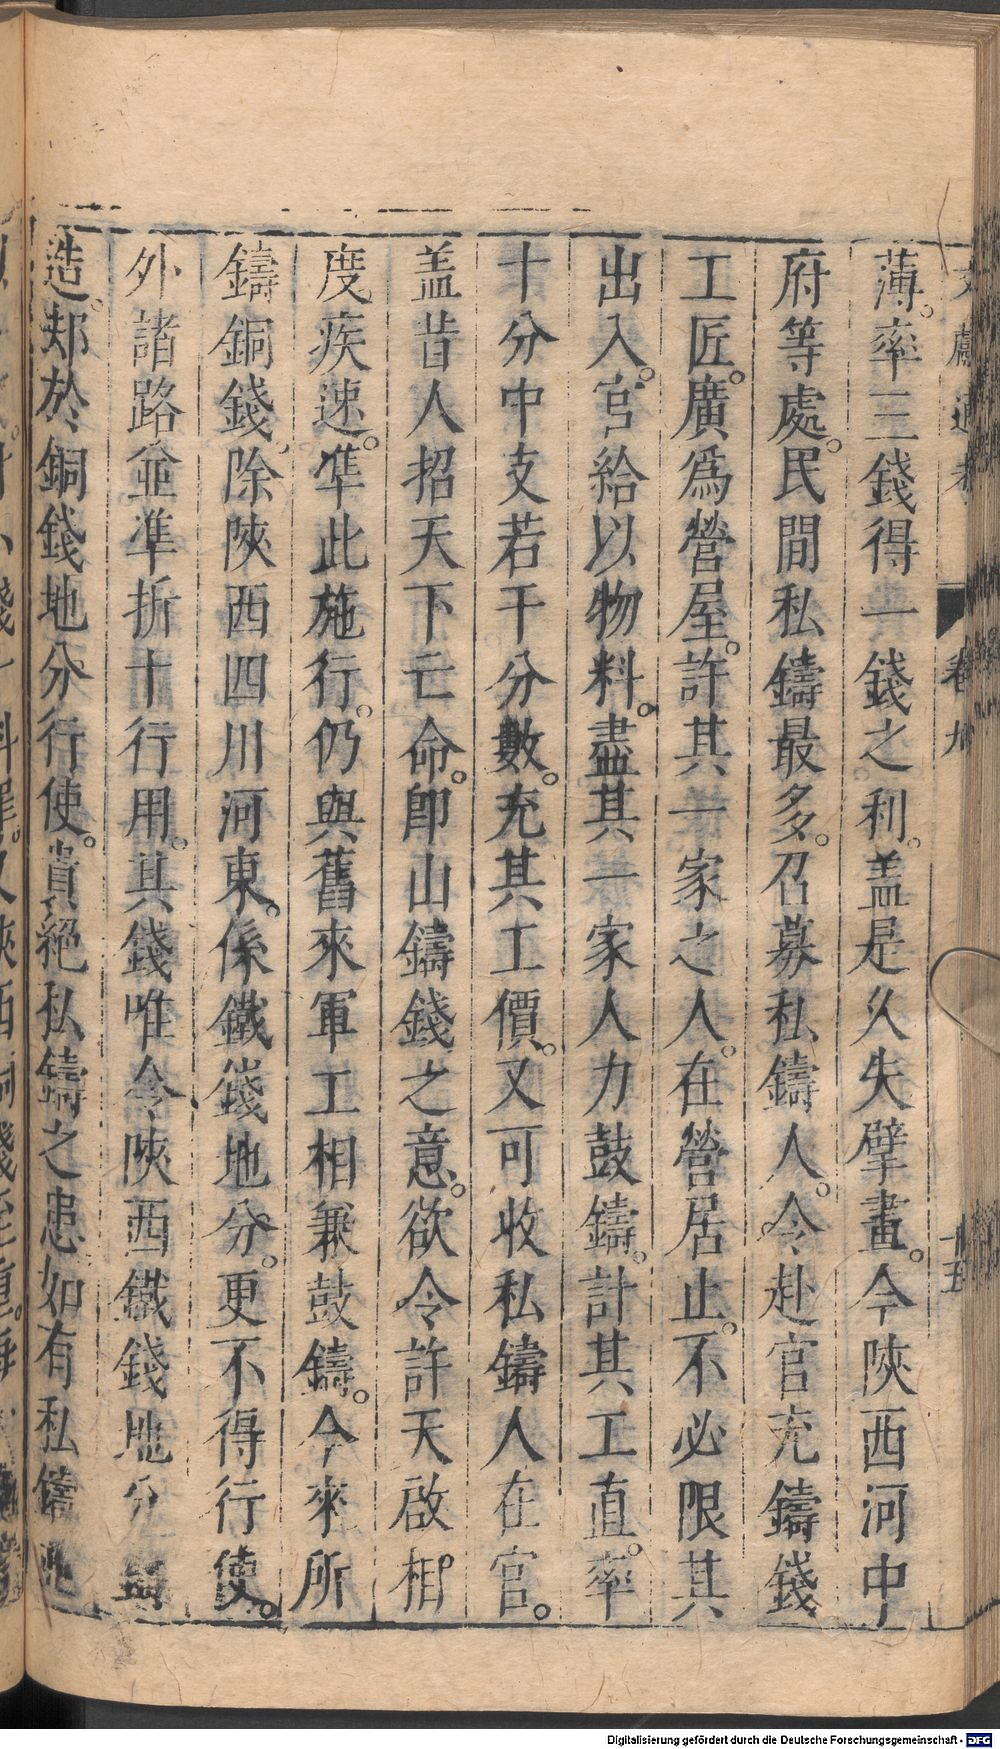 文獻通考 卷九 十五
薄。率三錢得一錢之利。盖是久失擘畫。今陝西河中
府等處。民間私鑄最多。召募私鑄人。令赴官充鑄錢
工匠。廣爲營屋。許其一家之人。在營居止。不必限其
出入。官給以物料。盡其一家人力鼓鑄。計其工直。率
十分中支若干分數。充其工價。又可收私鑄人在官。
盖昔人招天下亡命。卽山鑄錢之意。欲令許天啟相
度疾速。準此施行。仍與舊來軍工相兼鼓鑄。今來所
鑄銅錢。除陝西四川河東。係鐵錢地分。更不得行使。
外諸路並準折十行用。其錢唯令陝西鐵錢地分鑄
造。却於銅錢地分行使。貴絕私鑄之患。如有私鑄
Digitalisierung gefördert durch die Deutsche Forschungsgemeinschaft - DFG